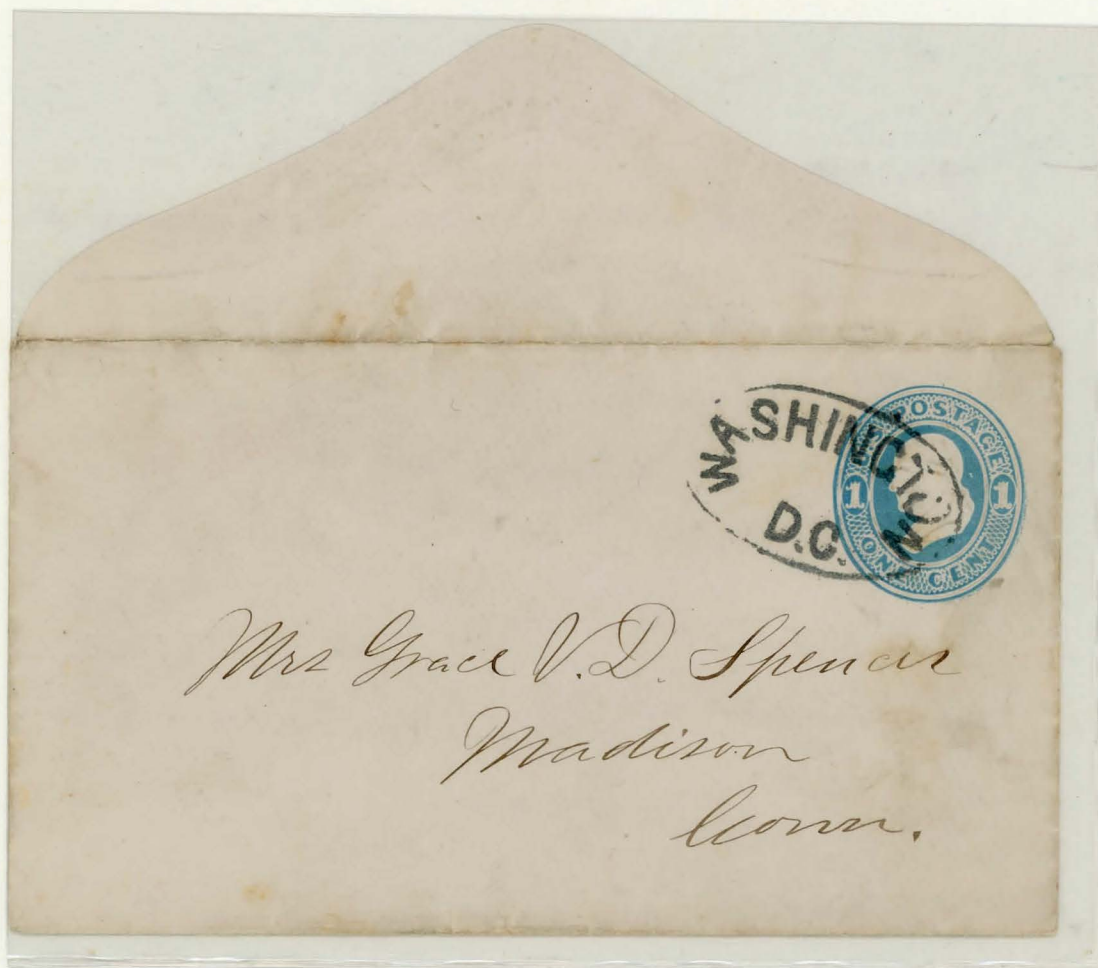 WASHINGTON
D.C.
POSTAGE
1 1
ONE CENT
Mrs Grace V. D. Spencer
Madison
Conn.